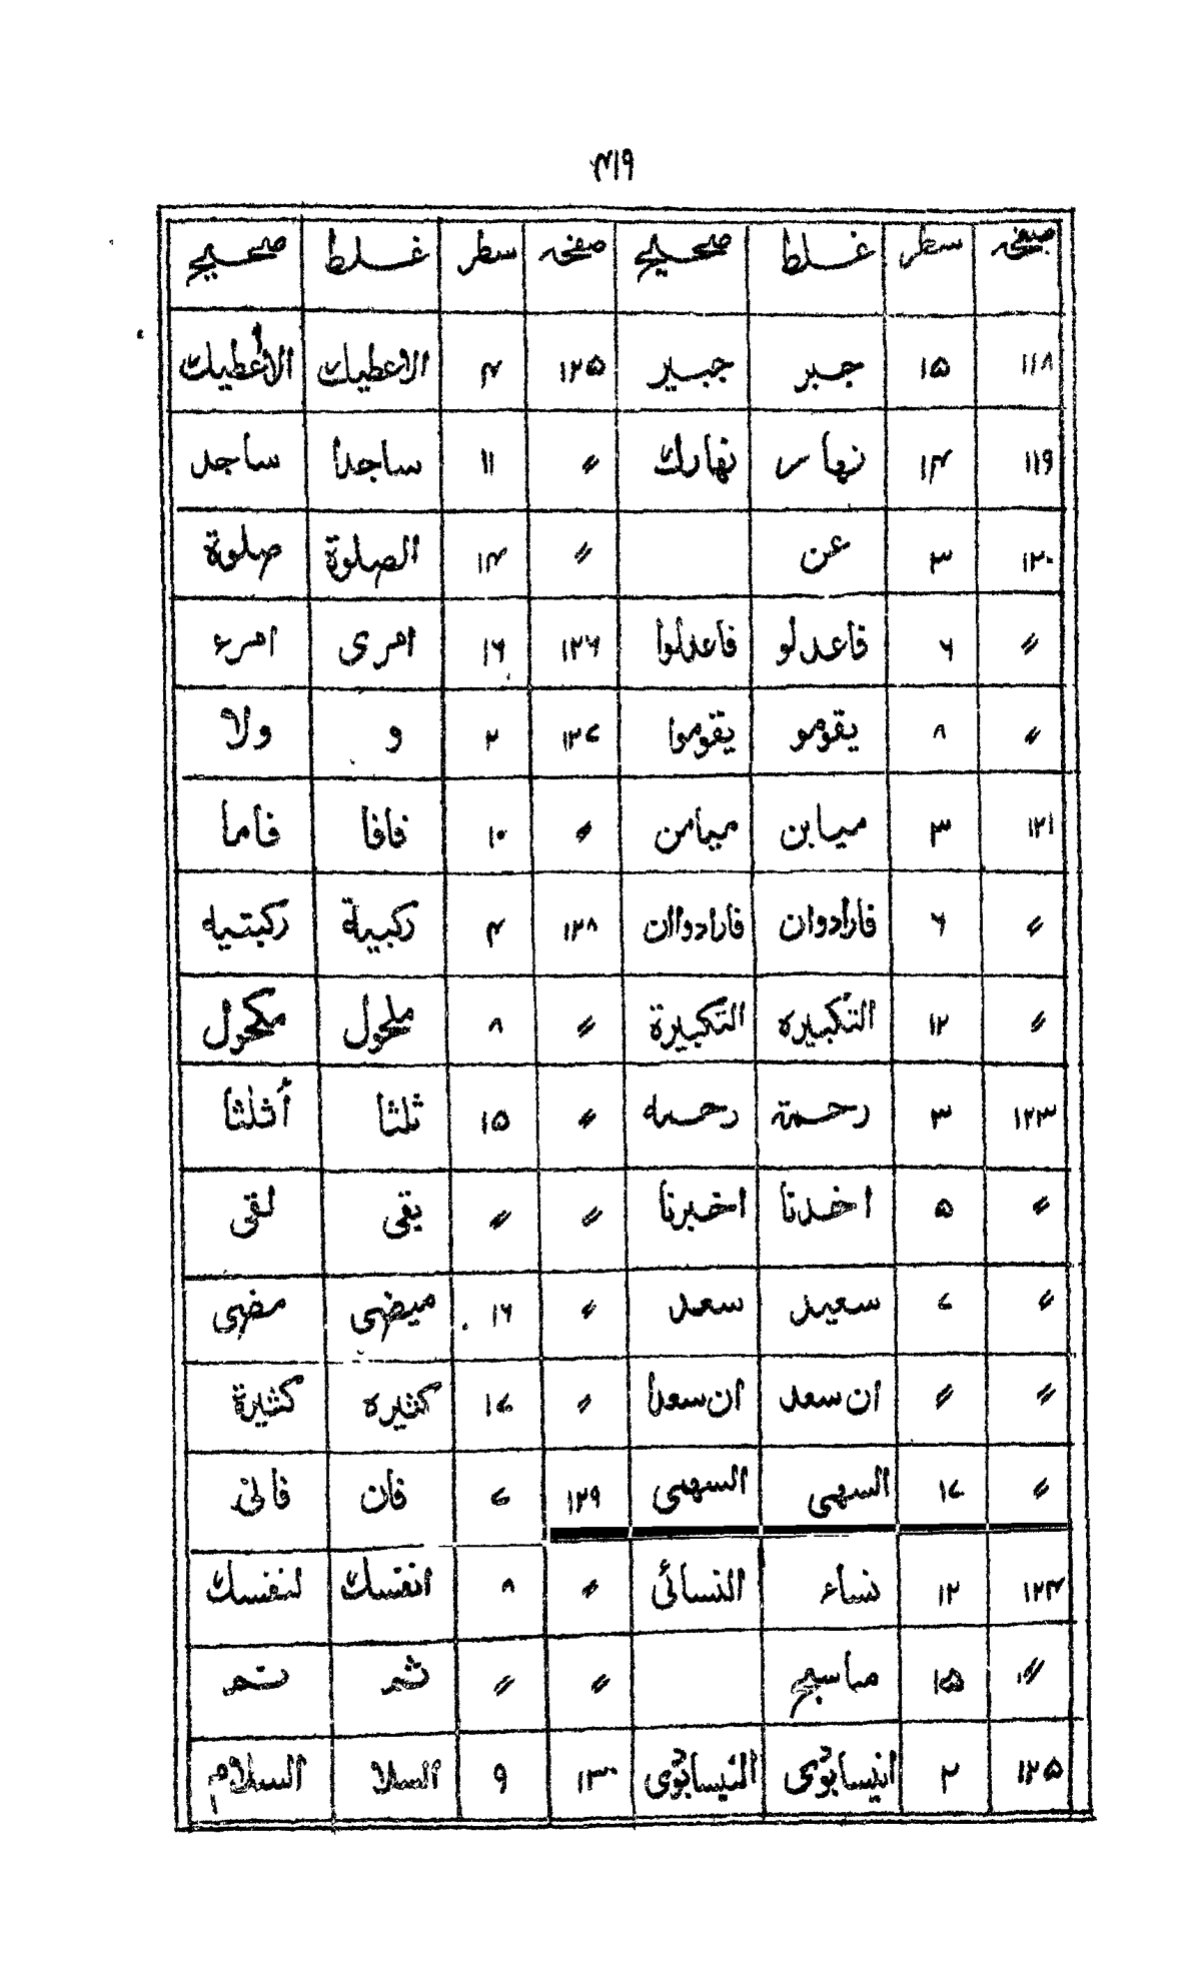 ۴۱۹
صفحہ سطر غلط صحیح صفحہ سطر غلط صحیح
۱۱۸ ۱۵ جبر جبیر ۱۲۵ ۴ الاعطیک الأعطیک
۱۱۹ ۱۴ نهار نهارک 〃 ۱۱ ساجدا ساجد
۱۲۰ ۳ عن 〃 ۱۴ الصلوة صلوة
〃 ۶ فاعدلو فاعدلوا ۱۲۶ ۱۶ امری امرء
〃 ۸ یقومو یقوموا ۱۲۷ ۲ و ولا
۱۲۱ ۳ میابن میامن 〃 ۱۰ فافا فاما
〃 ۶ فارادوان فارادواان ۱۲۸ ۴ رکبیة رکبتیه
〃 ۱۲ التکبیره التکبیرة 〃 ۸ ملحول مکحول
۱۲۳ ۳ رحمة رحمه 〃 ۱۵ ثلثا أثلثا
〃 ۵ اخدنا اخبرنا 〃 〃 یقی لقی
〃 ۷ سعید سعد 〃 ۱۶ میضی مضی
〃 〃 ان سعد ان سعدا 〃 ۱۷ کثیره کثیرة
〃 ۱۷ السهی السهمی ۱۲۹ ۷ فان فانی
۱۲۴ ۱۲ نساء النسائی 〃 ۸ انفسک لنفسک
〃 ۱۵ ماسبح 〃 〃 ثم تم
۱۲۵ ۲ انیسابوی النیسابوی ۱۳۰ ۹ السلا السلام